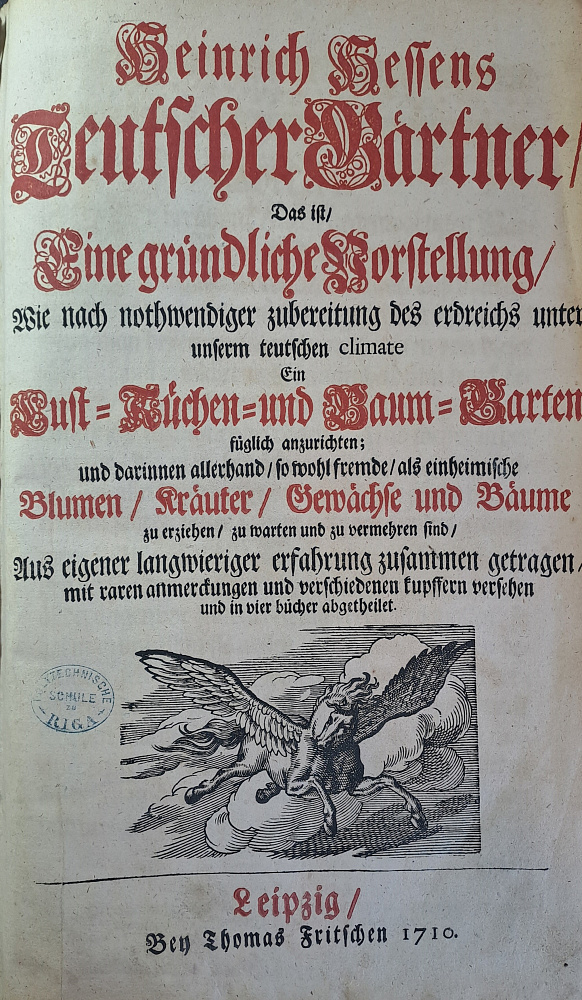 Heinrich Hessens
Teutscher Gärtner/
Das ist/
Eine gründliche Vorstellung/
Wie nach nothwendiger zubereitung des erdreichs unter
unserm teutschen climate
Ein
Lust-Küchen-und Baum-Garten
füglich anzurichten;
und darinnen allerhand/ so wohl fremde/ als einheimische
Blumen/ Kräuter/ Gewächse und Bäume
zu erziehen/ zu warten und zu vermehren sind/
Aus eigener langwieriger erfahrung zusammen getragen/
mit raren anmerckungen und verschiedenen kupffern versehen
und in vier bücher abgetheilet.
POLYTECHNISCHE
SCHULE
ZU
RIGA
Leipzig/
Bey Thomas Fritschen 1710.